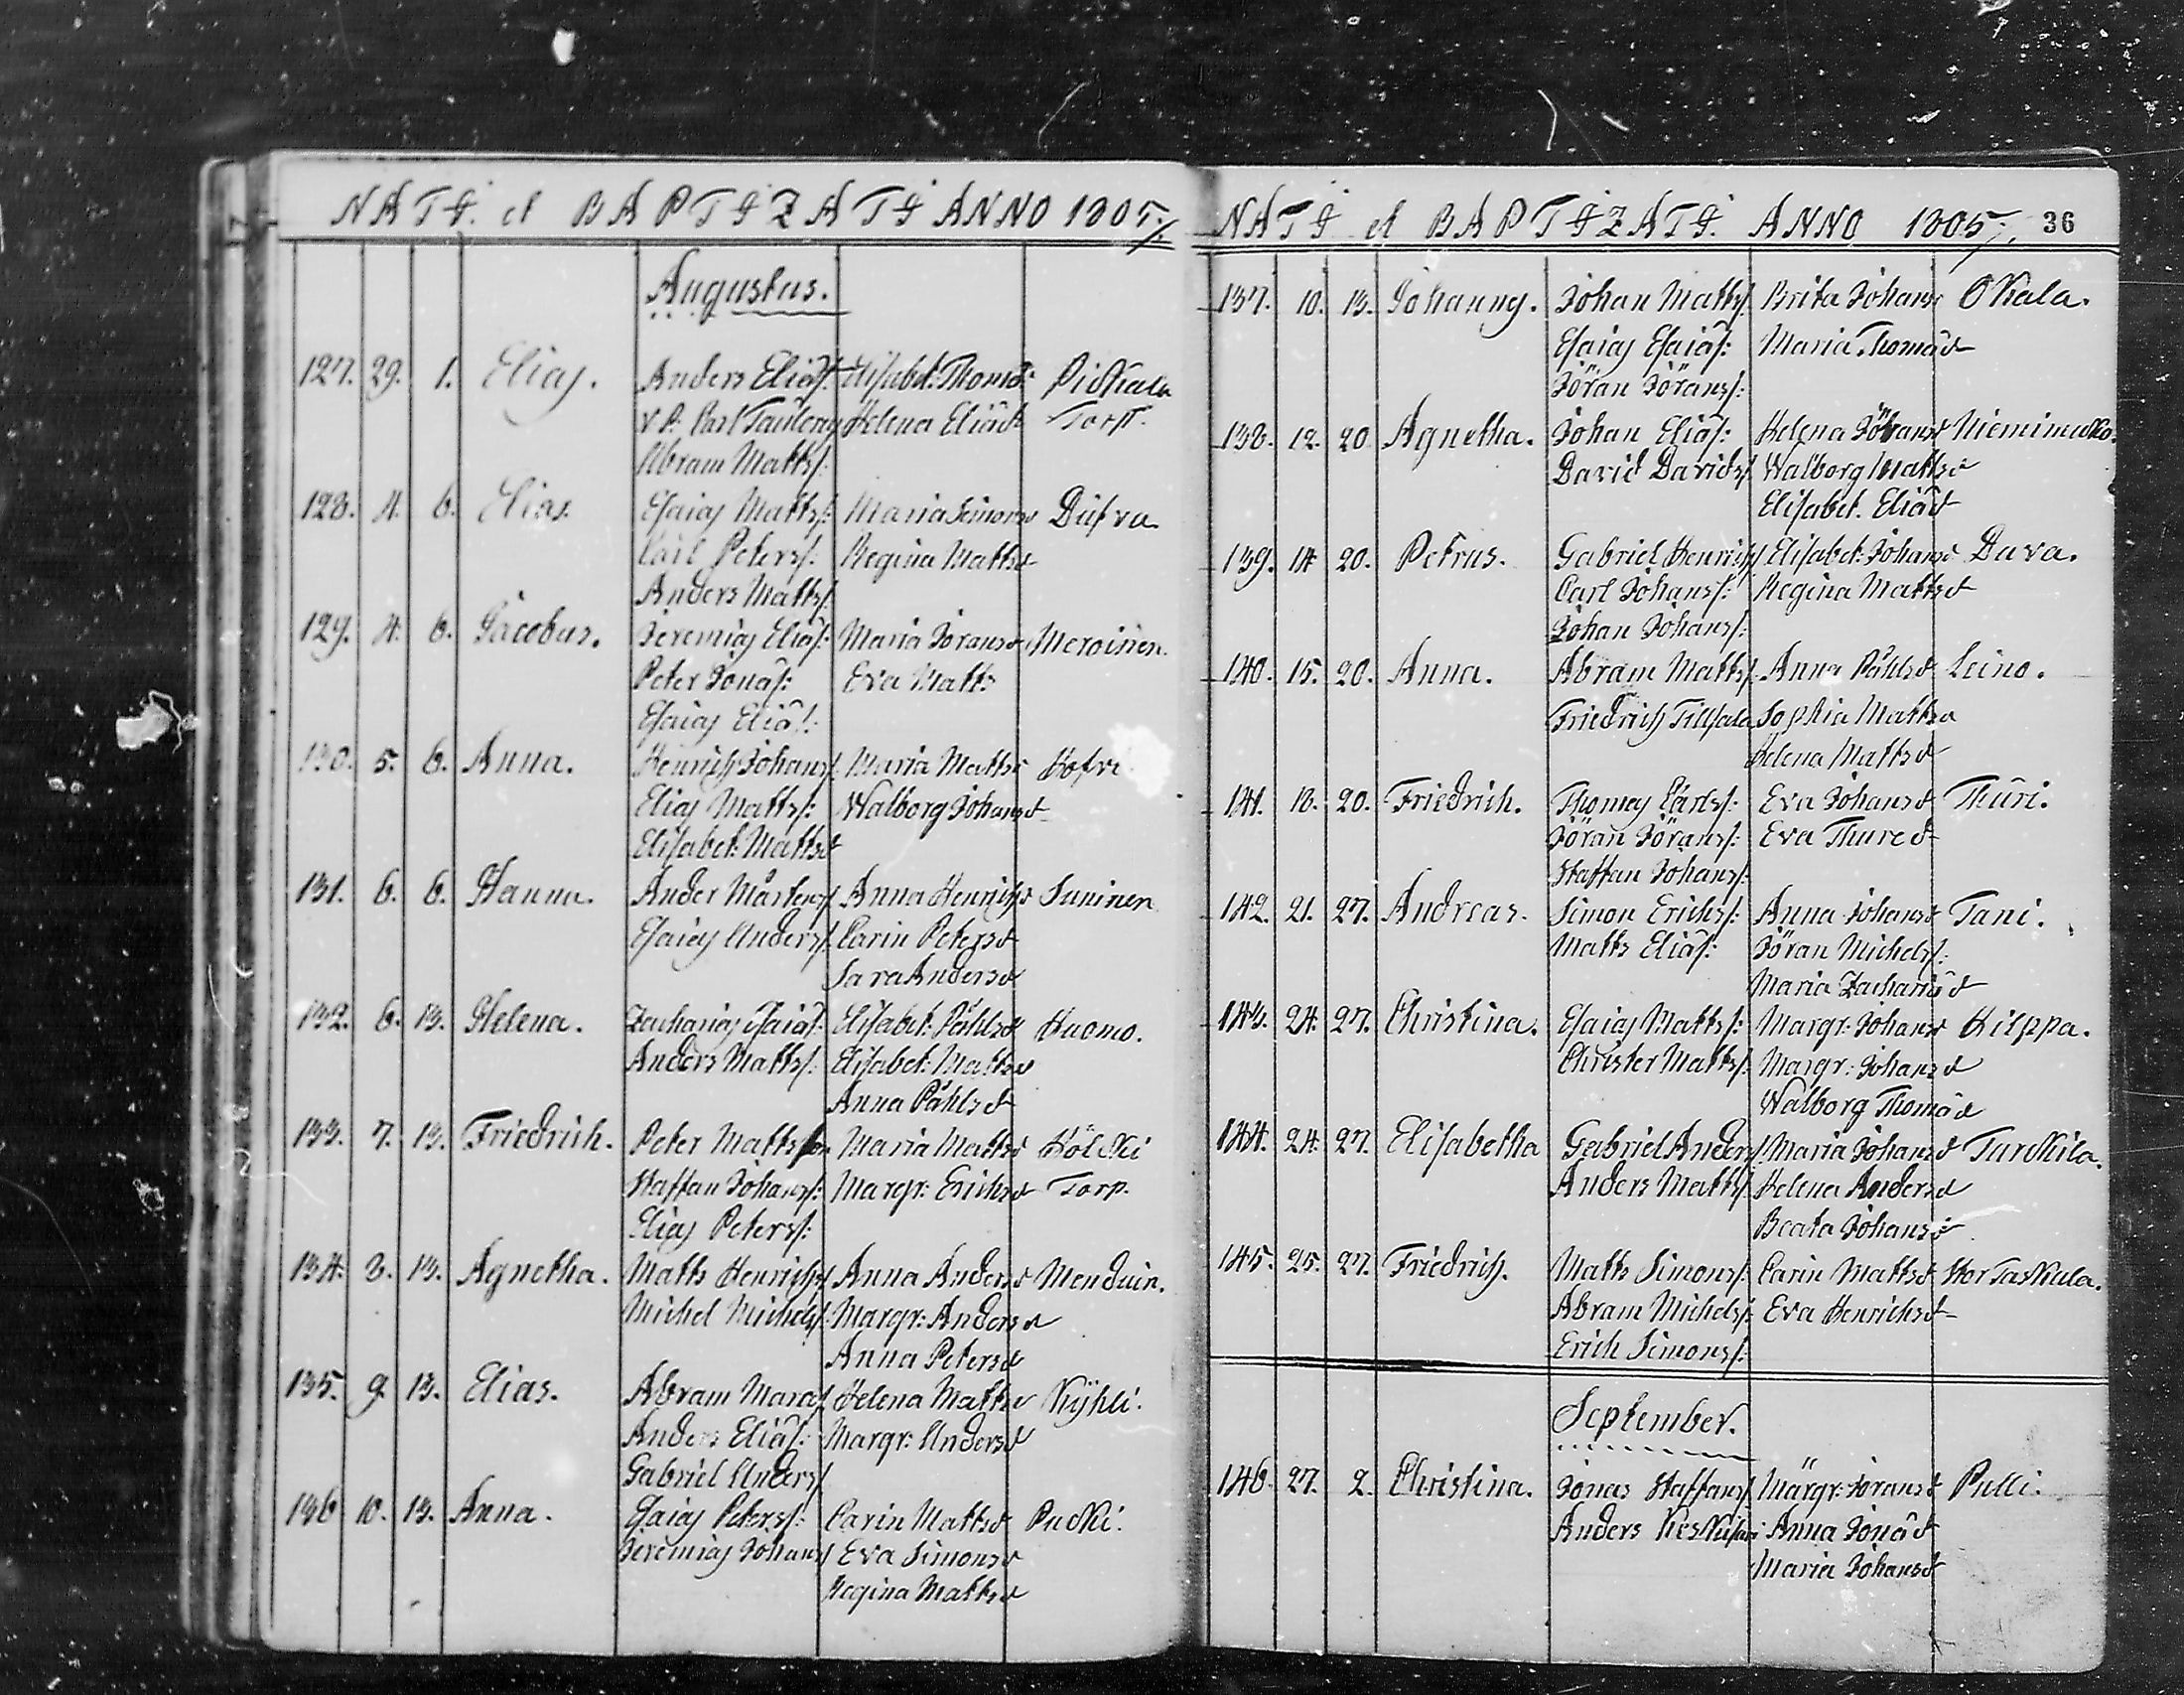 NATI. et BAPTIZATI ANNO 1805./.
Augustus.
127. 29. 1. Elias. Anders Eliæs: Elisabet: Thomæd: Pickala
V.P. Carl Tauleny Helena Eliæd Torp.
Abram Mattss:
128. 4. 6. Elias. Esaias Mattss: Maria Simonsd Dufva.
Carl Peterss: Regina Mattsd
Anders Mattss:
129. 4. 6. Jacobus. Jeremias Eliæs: Maria Joransd Meroinen.
Peter Jonæs: Eva Matts
Esaias Eliæs:
130. 5. 6. Anna. Henrich Johanss: Maria Mattsd
Elias Mattss: Walborg Johansd
Elisabet: Mattsd
131. 6. 6. Hanna. Ander Mårtenss: Anna Henrichsd Suninen
Esaias Anderss: Carin Petersd
Sara Andersd
132. 6. 13. Helena. Zacharias Esaiæs: Elisabet: Påhlsd Huomo.
Anders Mattss: Elisabet: Mattsd
Anna Påhlsd
133. 7. 13. Friedrich. Peter Mattsson Maria Mattsd Hölcki
Staffan Johanss: Margr: Erichsd Torp.
Elias Peterss:
134. 8. 13. Agnetha. Matts Henrichss: Anna Andersd Menduin.
Michel Michelss: Margr: Andersd
Anna Petersd
135. 9. 13. Elias. Abram Helena Mattsd Kyhli.
Anders Eliæs: Margr: Andersd
Gabriel Anderss:
136 10. 13. Anna. Esaias Peterss: Carin Mattsd Pucki.
Jeremias Johanss: Eva Simonsd
Regina Mattsd
NATI et BAPTIZATI. ANNO 1805./. 36
137. 10. 13. Johannes. Johan Mattss: Brita Johansd OKala.
Esaias Esaiæs: Maria Thomæd
Jöran Jöranss:
138. 12. 20. Agnetha. Johan Eliæs: Helena Jöransd Nieminucko.
David Davidss: Walborg Mattsd
Elisabet. Eliæd
139. 14 20. Petrus. Gabriel Henrichss: Elisabet: Johansd Dava.
Carl Johanss: Regina Mattsd
Johan Johanss:
140. 15. 20. Anna. Abram Mattss: Anna Påhlsd Leino.
Friedrich Tillsala Sophia Mattsd
Helena Mattsd
141. 18. 20. Friedrich. Thomas Carlss: Eva Johansd Thuri.
Jöran Jöranss: Eva Thured
Staffan Johanss:
142. 21. 27. Andreas. Simon Erichss: Anna Johansd Tani.
Matts Eliæs: Jöran Michelss:
Maria Zachariæd
143. 24. 27. Christina. Esaias Mattss: Margr: Johansd Hilppa.
Christer Mattss: Margr: Johansd
Walborg Thomæd
144. 24. 27. Elisabetha Gabriel Anderss: Maria Johansd Turckila.
Anders Mattss: Helena Andersd
Beata Johansd
145. 25. 27. Friedrich. Matts Simonss: Carin Mattsd Stor Taskula.
Abram Michelss: Eva Henrichsd
Erich Simonss:
September.
146. 27. 2. Christina. Jonas Staffanss: Margr: Jöransd Pulli.
Anders Keskisari Anna Jonæd
Maria Johansd